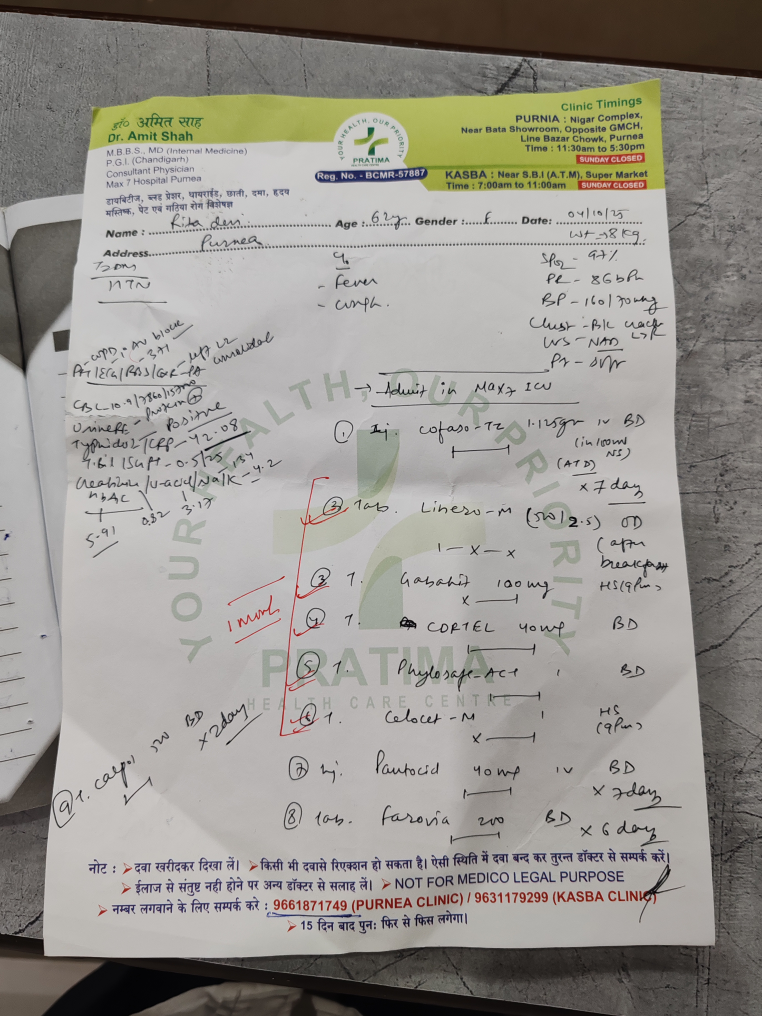 डॉ० अमित साह
Dr. Amit Shah
M.B.B.S., MD (Internal Medicine)
P.G.I. (Chandigarh)
Consultant Physician
Max 7 Hospital Purnea
डायबिटीज, ब्लड प्रेशर, थायराईड, छाती, दमा, हृदय
मस्तिष्क, पेट एवं गठिया रोग विशेषज्ञ
YOUR HEALTH, OUR PRIORITY
PRATIMA
HEALTH CARE CENTRE
Reg. No. - BCMR-57887
Clinic Timings
PURNIA : Nigar Complex,
Near Bata Showroom, Opposite GMCH,
Line Bazar Chowk, Purnea
Time : 11:30am to 5:30pm
SUNDAY CLOSED
KASBA : Near S.B.I (A.T.M), Super Market
Time : 7:00am to 11:00am SUNDAY CLOSED
Name : Rita Devi Age : 62y Gender : F Date: 04/10/25
Address Purnea
T2DM
HTN
- Fever
- Cough
SPO2 - 97%
PR - 86 bPm
BP - 160/70 mmHg
Chest - B/L
CVS - NAD
Positive
CRP - 42.08
0.5/25
Na/K - 4.2
HbA1C
5.91
0.82
3.17
→ Admit in Max 7 ICU
① Inj. Cofaso-TZ 1.125gm IV BD
(in 100ml NS)
(ATD)
x 7 day
② Tab. Linezo-M (500/2.5) OD
1 - x - x (after breakfast)
③ T. Gabahit 100mg HS (9Pm)
④ T. CORTEL 40mg BD
⑤ T. 1 BD
⑥ T. Celocet-M 1 HS (9Pm)
1 month
⑦ Inj. Pantocid 40mg IV BD
x 7 day
⑧ Tab. Farovia 200 BD
x 6 day
⑨ T. 500 BD
x 2 day
YOUR HEALTH, OUR PRIORITY
PRATIMA
HEALTH CARE CENTRE
नोट : ➤ दवा खरीदकर दिखा लें। ➤ किसी भी दवासे रिएक्शन हो सकता है। ऐसी स्थिति में दवा बन्द कर तुरन्त डॉक्टर से सम्पर्क करें।
➤ ईलाज से संतुष्ट नही होने पर अन्य डॉक्टर से सलाह लें। ➤ NOT FOR MEDICO LEGAL PURPOSE
➤ नम्बर लगवाने के लिए सम्पर्क करे : 9661871749 (PURNEA CLINIC) / 9631179299 (KASBA CLINIC)
➤ 15 दिन बाद पुनः फिर से फिस लगेगा।